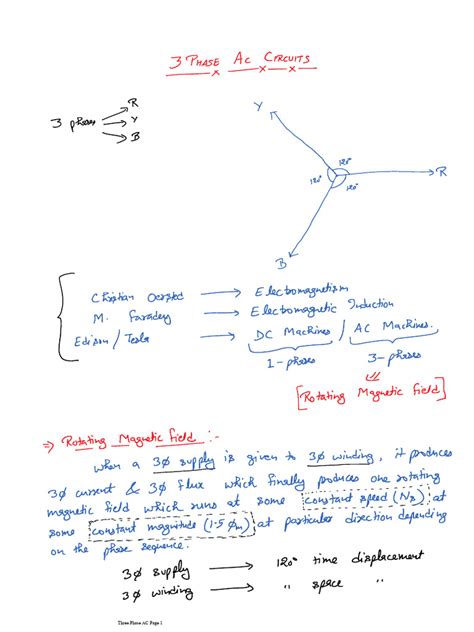 3 PHASE AC CIRCUITS
3 phases → R
→ Y
→ B
Y
120°
120°
120°
R
B
Christian Oersted → Electromagnetism
M. Faraday → Electromagnetic Induction
Edison / Tesla → DC Machines / AC Machines.
1-phases 3-phases
[Rotating Magnetic field]
⇒ Rotating Magnetic field :-
when a 3ϕ supply is given to 3ϕ winding, it produces
3ϕ current & 3ϕ flux which finally produces one rotating
magnetic field which runs at some constant speed (Ns) at
some constant magnitude (1.5 ϕm) at particular direction depending
on the phase sequence.
3ϕ supply → 120° time displacement
3ϕ winding → " space "
Three Phase AC Page 1